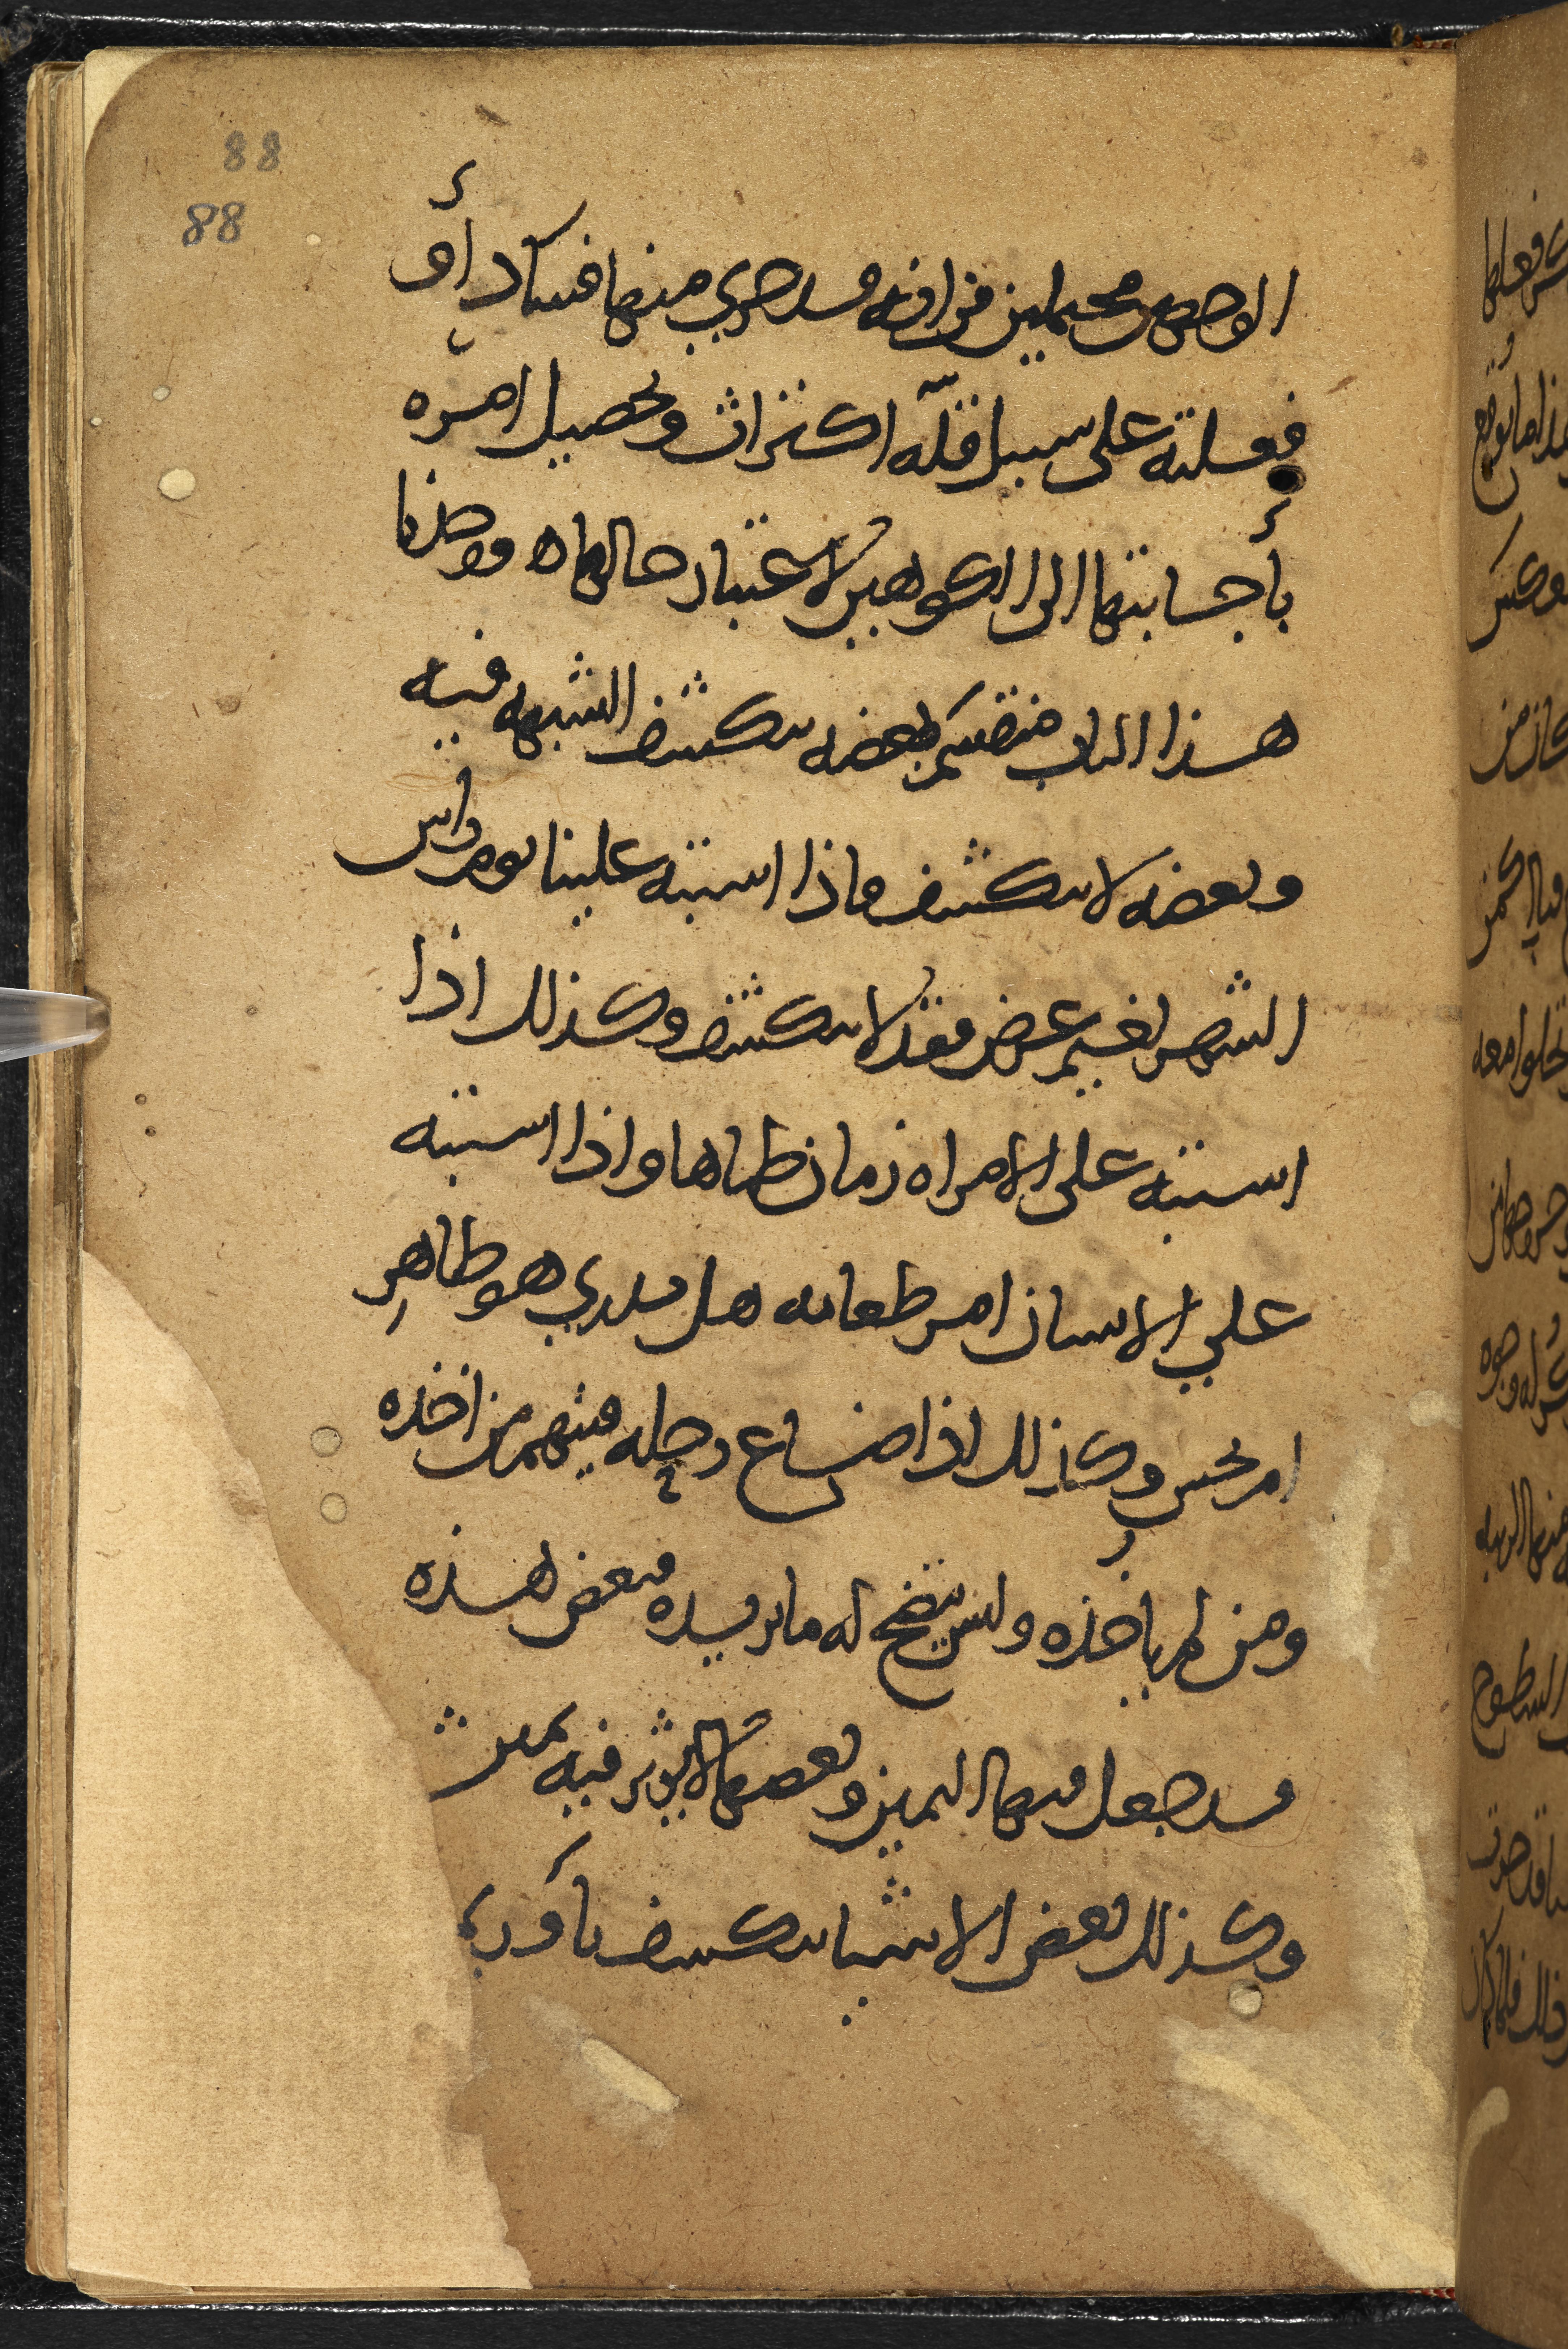 88
88
الوجهين محتملين من انه قد جري منها فساد او
فعلته على سبيل قلّه اكتراث وتحصيل امره
بأجسابتها الى الكوهين لاعتبار حالها ه ووجدنا
هذا الباب منقسم بعضه ينكشف الشبهه فيه
وبعضه لا ينكشف فاذا اشتبه علينا يوم راس
الشهر لغيم عرض فقد لا ينكشف وكذلك اذا
اشتبه على الامراه زمان طماها واذا اشتبه
علي الانسان امر طعامه هل يدري هو طاهر
ام نجس وكذلك اذا ضاع رحله فيتهم من اخذه
ومن لم ياخذه وليس يتضح له ما يريده فبعض هذه
قد جعل فيها اليمين وبعضها لا يوثر فيه يمين
وكذلك بعض الاشيا ينكشف باوري